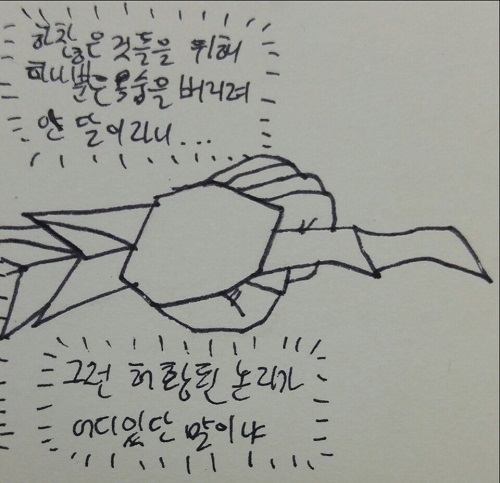 하찮은 것들을 위해
하나뿐은 목숨을 버리려
안 달이라니...
그런 허황된 논리가
어디있단 말이냐